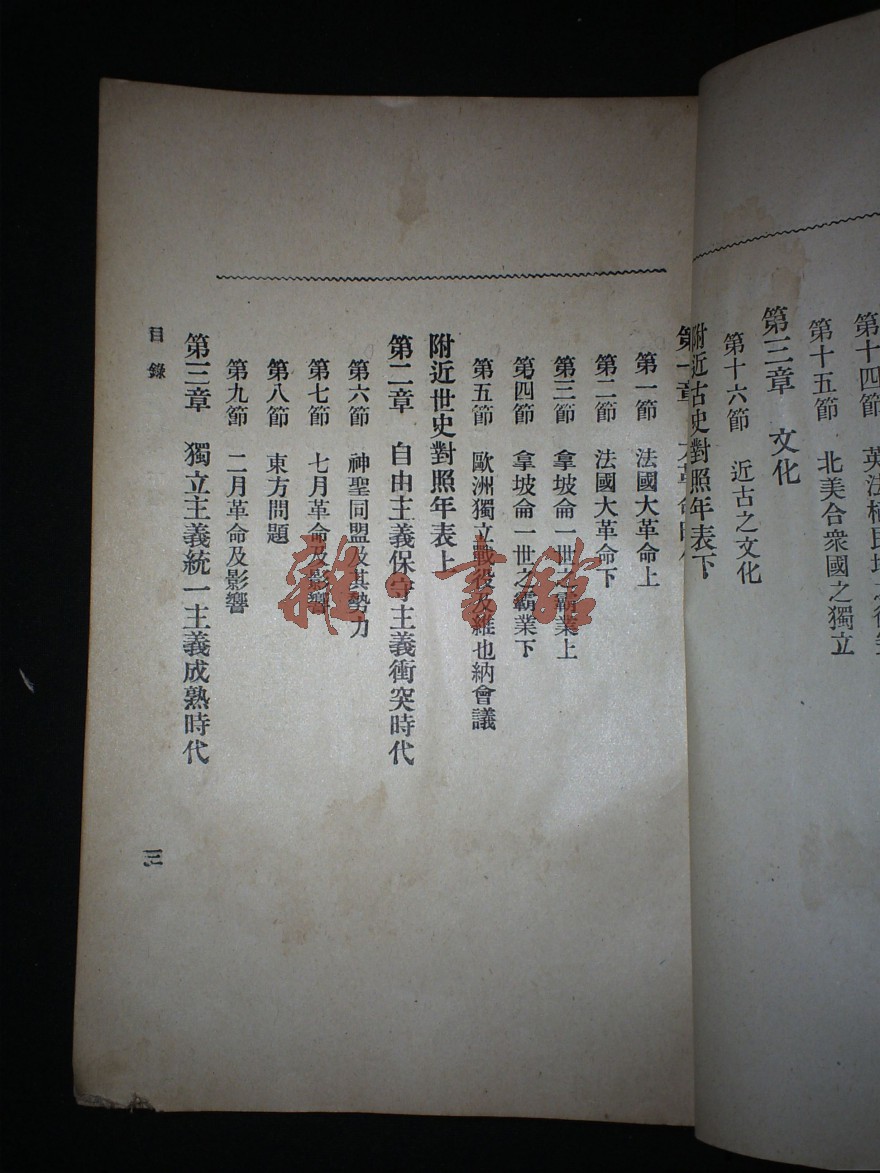 第十四節 英法植民地之
第十五節 北美合衆國之獨立
第三章 文化
第十六節 近古之文化
附近古史對照年表下
第一章 大革命
第一節 法國大革命上
第二節 法國大革命下
第三節 拿坡侖一世之霸業上
第四節 拿坡侖一世之霸業下
第五節 歐洲獨立戰役及維也納會議
附近世史對照年表上
第二章 自由主義保守主義衝突時代
第六節 神聖同盟及其勢力
第七節 七月革命及影響
第八節 東方問題
第九節 二月革命及影響
第三章 獨立主義統一主義成熟時代
目錄
三
雜·書館